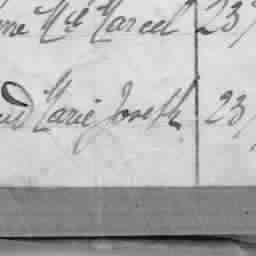 ne Mll Marcel 23
Marie Joseph 23